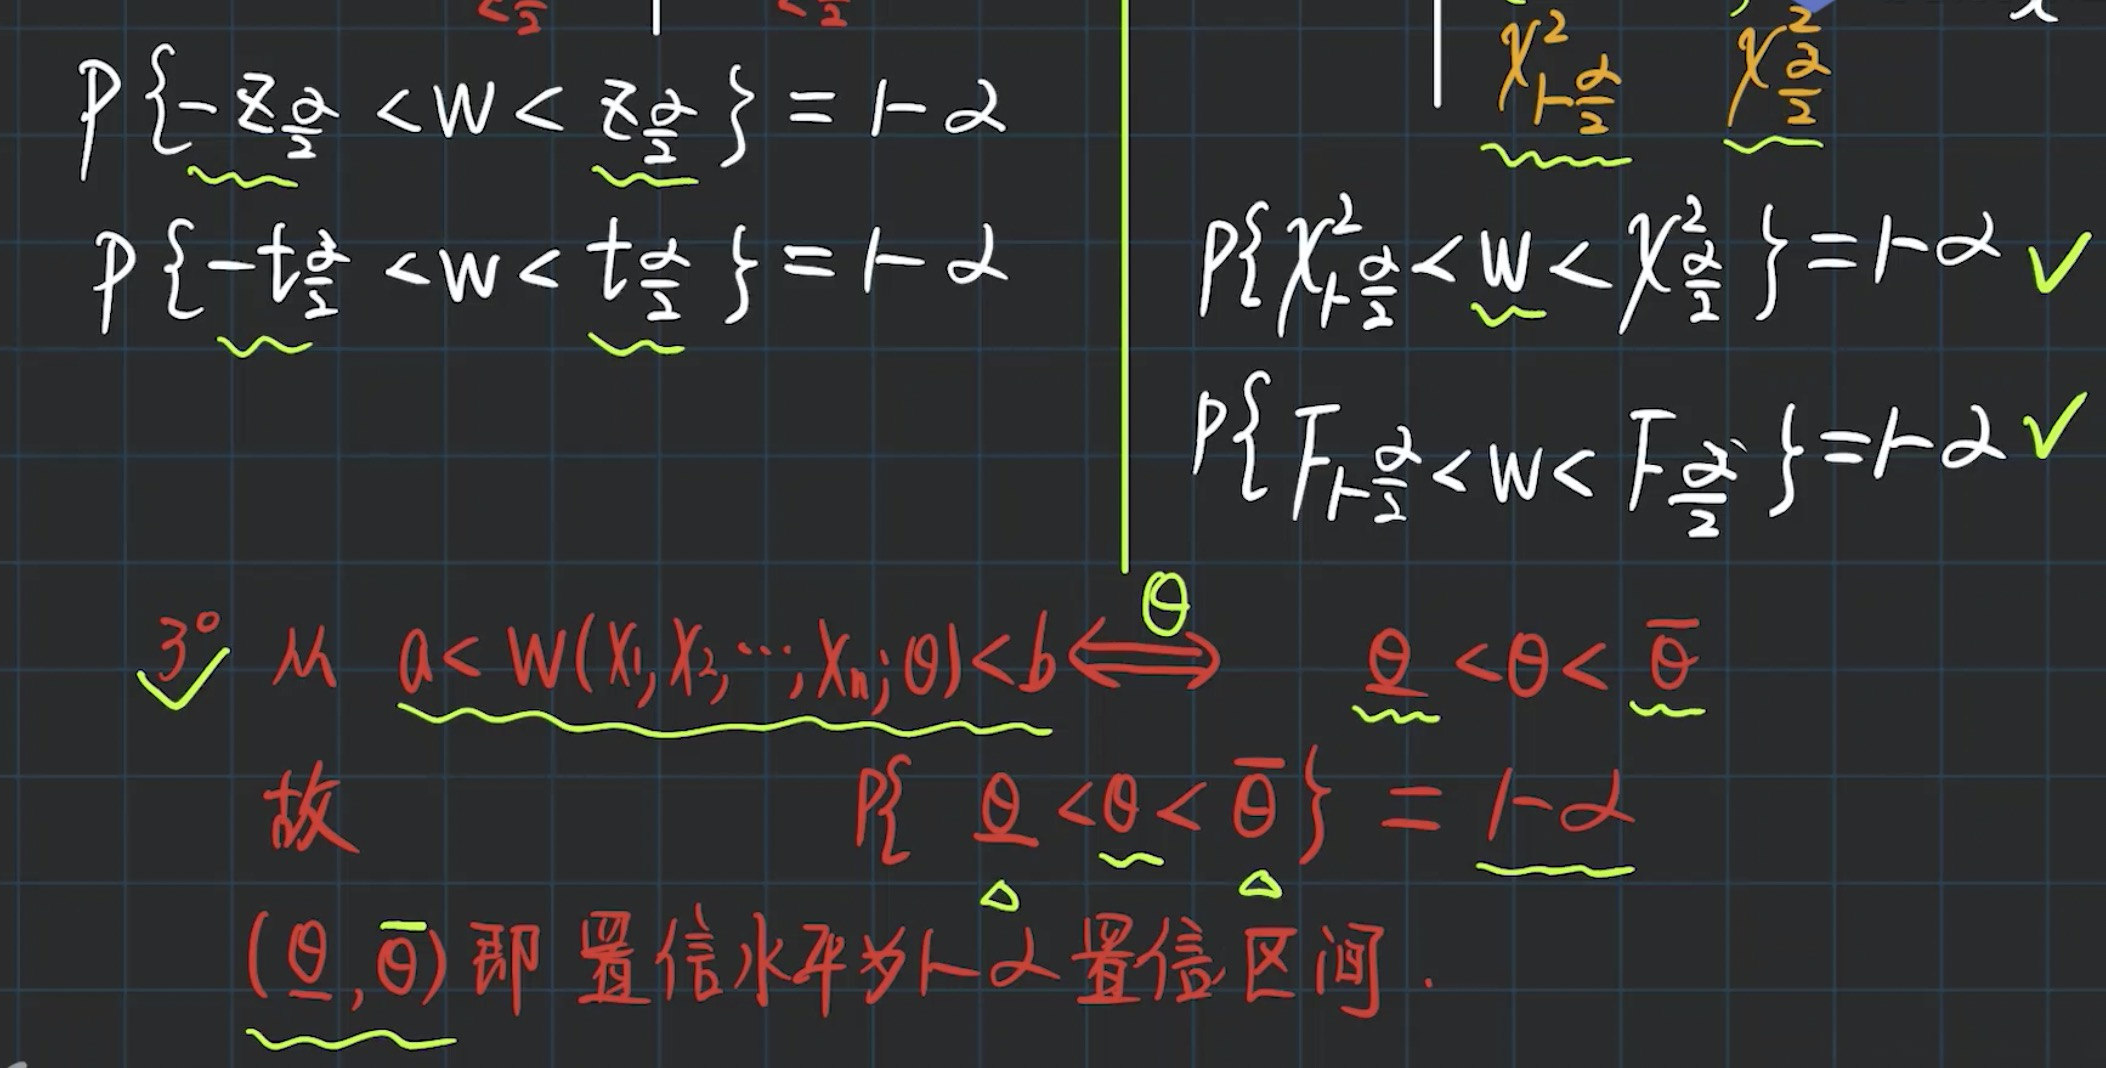 P{-z_{α/2} < W < z_{α/2}} = 1-α
P{-t_{α/2} < W < t_{α/2}} = 1-α
χ²_{1-α/2} χ²_{α/2}
P{χ²_{1-α/2} < W < χ²_{α/2}} = 1-α ✓
P{F_{1-α/2} < W < F_{α/2}} = 1-α ✓
θ
3° 从 a < W(X₁, X₂, …, Xₙ; θ) < b ⟺ θ̲ < θ < θ̅
故 P{ θ̲ < θ < θ̅ } = 1-α
(θ̲, θ̅) 即 置信水平为 1-α 置信区间.